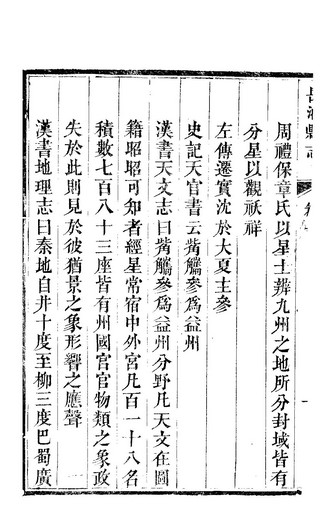 長壽縣志
周禮保章氏以星土辨九州之地所分封域皆有
分星以觀祅祥
左傳遷實沈於大夏主參
史記天官書云觜觿參爲益州
漢書天文志曰觜觿參爲益州分野凡天文在圖
籍昭昭可知者經星常宿中外宮凡百一十八名
積數七百八十三座皆有州國官宫物類之象政
失於此則見於彼猶景之象形響之應聲
漢書地理志曰秦地自井十度至柳三度巴蜀廣